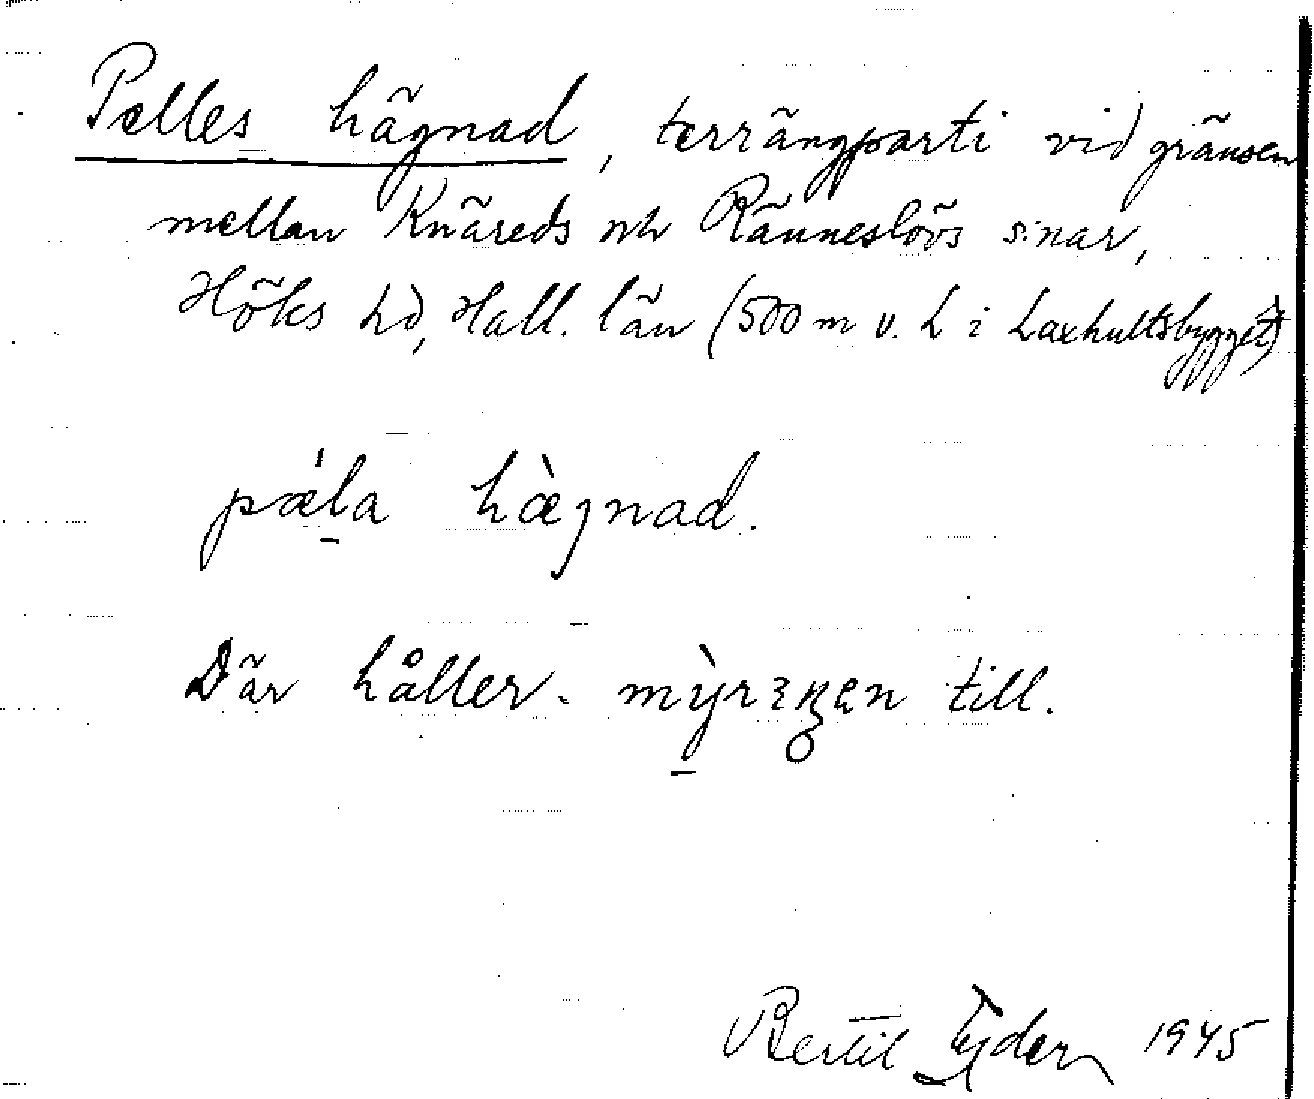 Pelles hägnad, terrängparti vid gränsen
mellan Knäreds och Ränneslövs s:nar,
Höks hd, Hall. län (500 m v. L i Laxhultsbygget)
pæ̀la hæ̀gnad.
Där håller till.
Bertil 1945